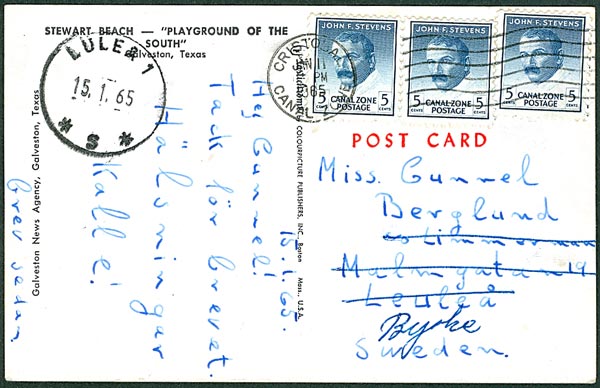 STEWART BEACH — "PLAYGROUND OF THE
SOUTH"
Galveston, Texas
LULEÅ 1
15.1.65
* S *
CRISTOBAL
JAN 11
PM
1965
CANAL ZONE
JOHN F. STEVENS
5 CENTS CANAL ZONE POSTAGE 5 CENTS
JOHN F. STEVENS
5 CENTS CANAL ZONE POSTAGE 5 CENTS
JOHN F. STEVENS
5 CENTS CANAL ZONE POSTAGE 5 CENTS
POST CARD
15.1.65.
Hej Gunnel!
Tack för brevet.
Hälsningar
Kalle!
Brev sedan
Galveston News Agency, Galveston, Texas
COLOURPICTURE PUBLISHERS, INC., Boston Mass., U.S.A.
Miss. Gunnel
Berglund
Malmgatan 19
Leuleå
Byske
Sweden.